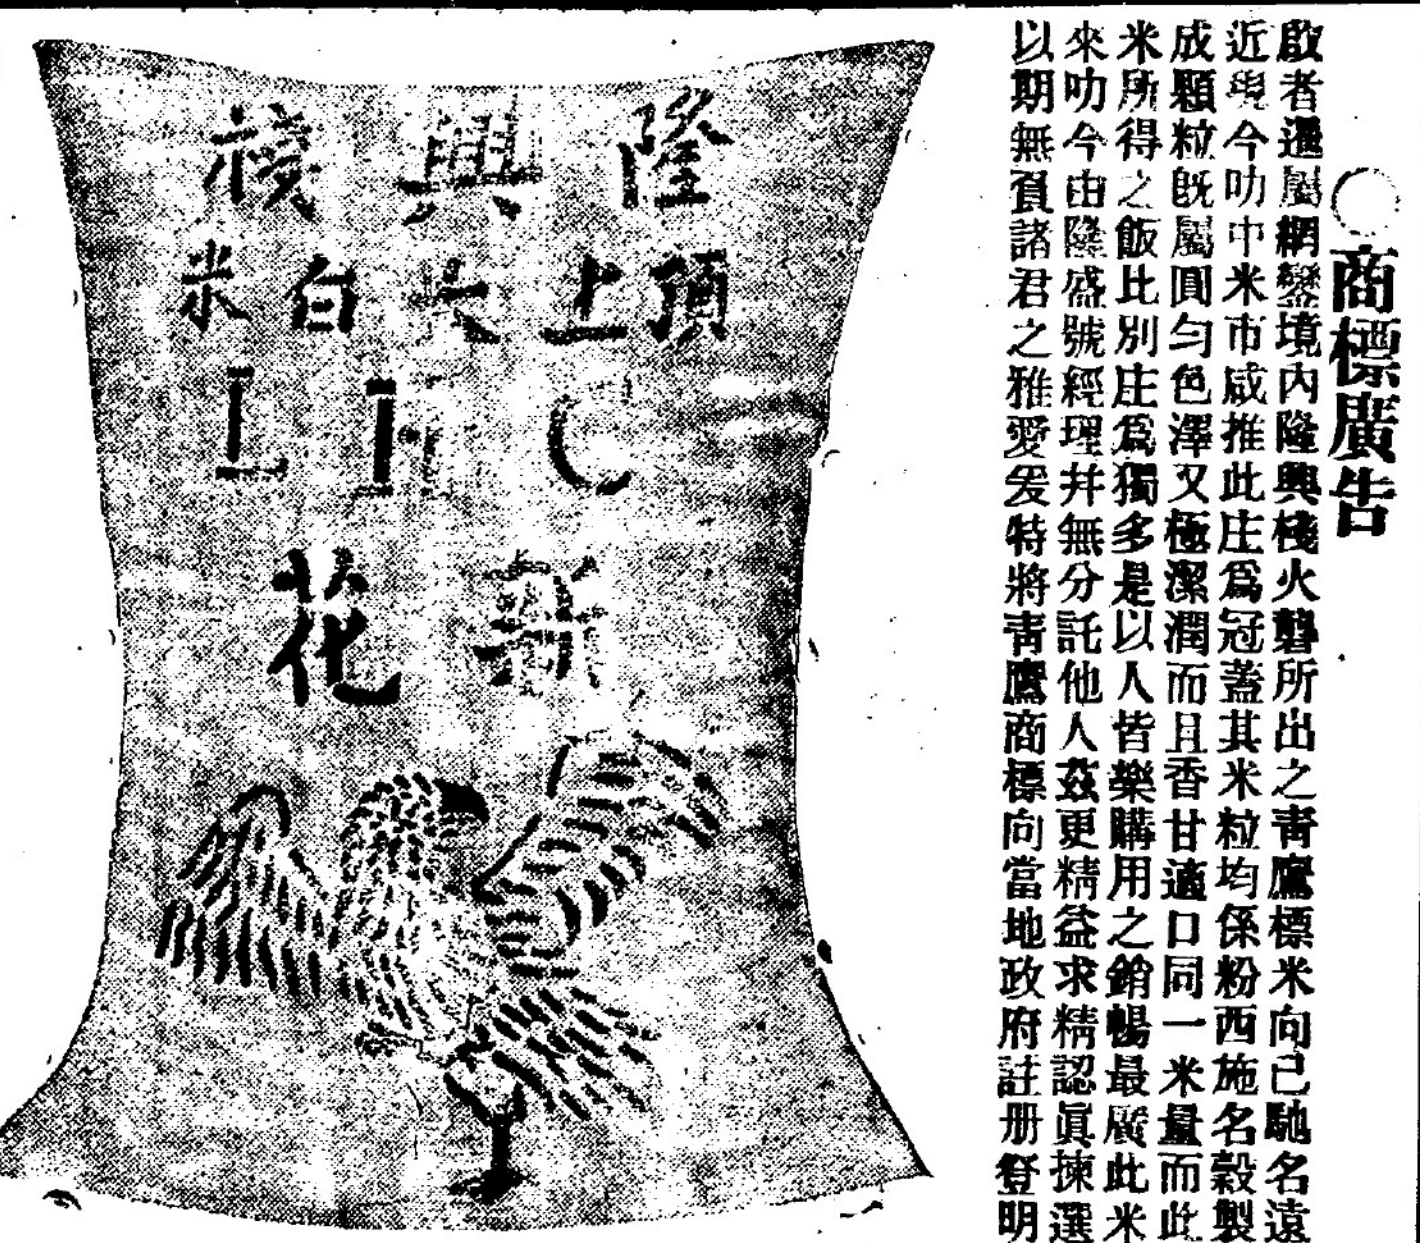 商標廣告
啟者暹屬網鑾境內隆興棧火礱所出之靑鷹標米向已馳名遠
近現今叻中米市咸推此庄爲冠蓋其米粒均係粉西施名穀製
成顆粒旣屬圓勻色澤又極潔潤而且香甘適口同一米量而此
米所得之飯比別庄爲獨多是以人皆樂購用之銷暢最廣此米
來叻今由隆盛號經理幷無分託他人茲更精益求精認眞揀選
以期無負諸君之雅愛爰特將靑鷹商標向當地政府註册登明
隆興棧
頂上大白米
L H C
新花